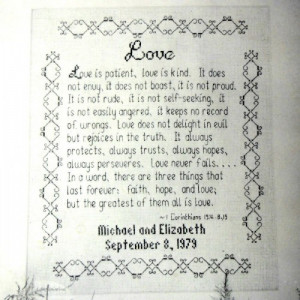 Love
Love is patient, love is kind. It does
not envy, it does not boast, it is not proud.
It is not rude, it is not self-seeking, it
is not easily angered, it keeps no record
of wrongs. Love does not delight in evil
but rejoices in the truth. It always
protects, always trusts, always hopes,
always perseveres. Love never fails....
In a word, there are three things that
last forever: faith, hope, and love;
but the greatest of them all is love.
~1 Corinthians 13:4-8,13
Michael and Elizabeth
September 8, 1979